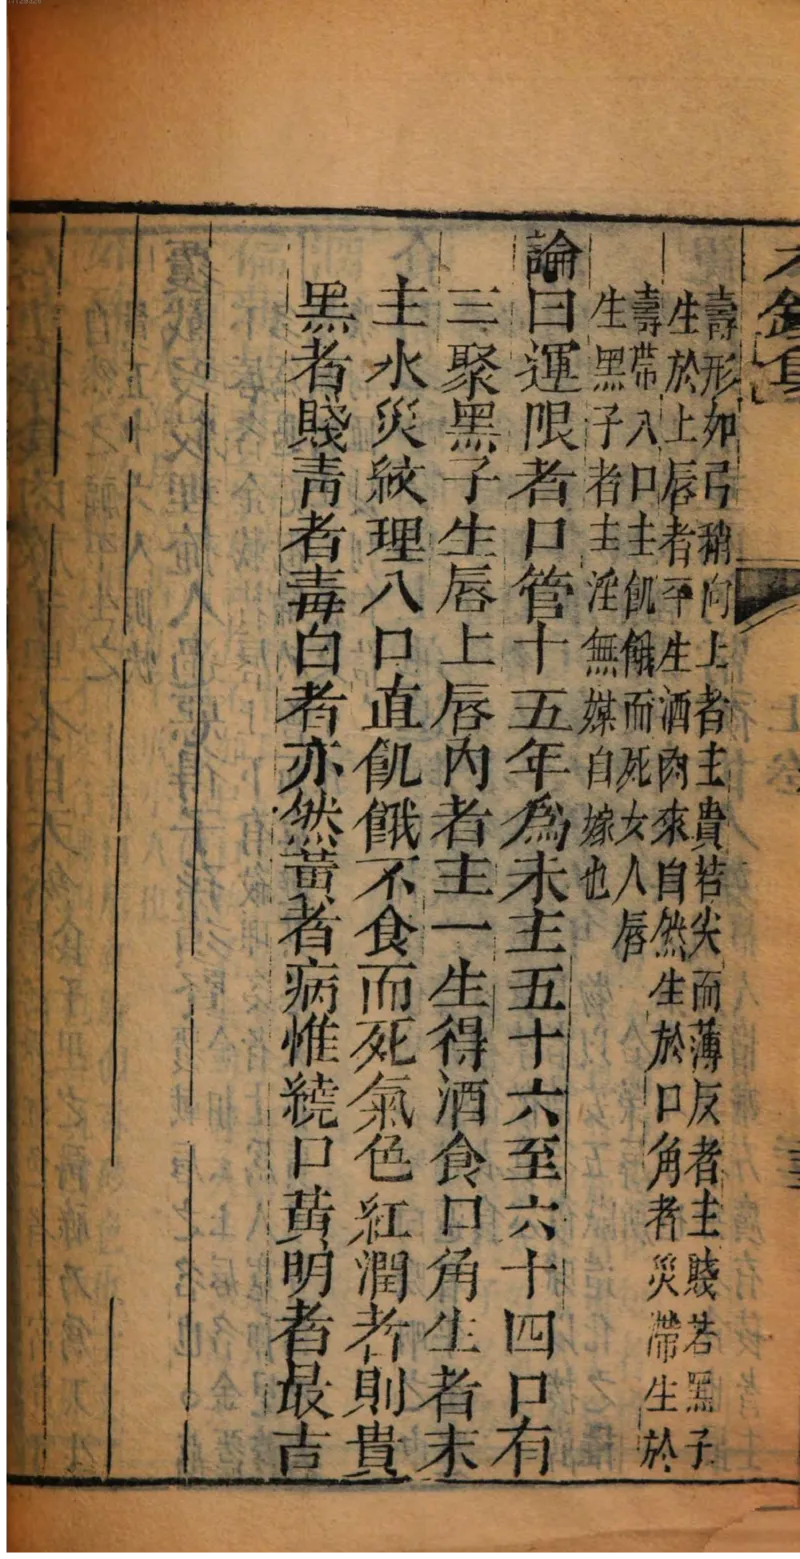 壽形如弓稍向上者主貴若尖而薄反者主賤若黑子
生於上唇者平生酒肉來自然生於口角者災滯生於
壽帶入口主飢餓而死女人唇
生黑子者主淫無媒自嫁也
論曰運限者口管十五年為末主五十六至六十四口有
三聚黑子生唇上唇內者主一生得酒食口角生者末
主水災紋理入口直飢餓不食而死氣色紅潤者則貴
黑者賤靑者毒白者亦然黃者病惟繞口黃明者最吉